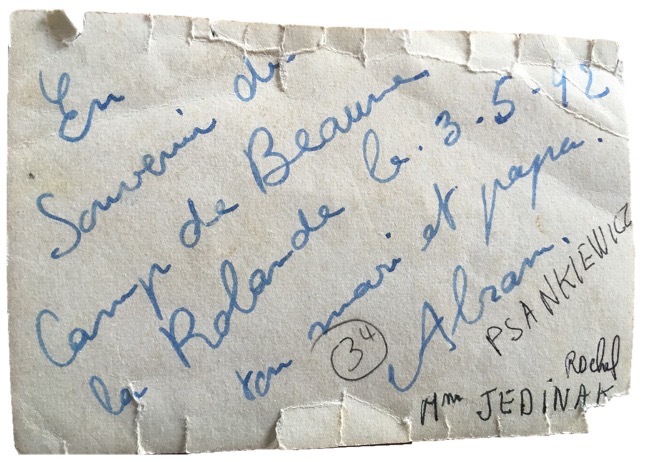 En
Souvenir du
Camp de Beaune
la Rolande le. 3.5.42
ton mari et papa.
Abram.
34
PSANKIEWICZ
Rochel
Mme JEDINAK